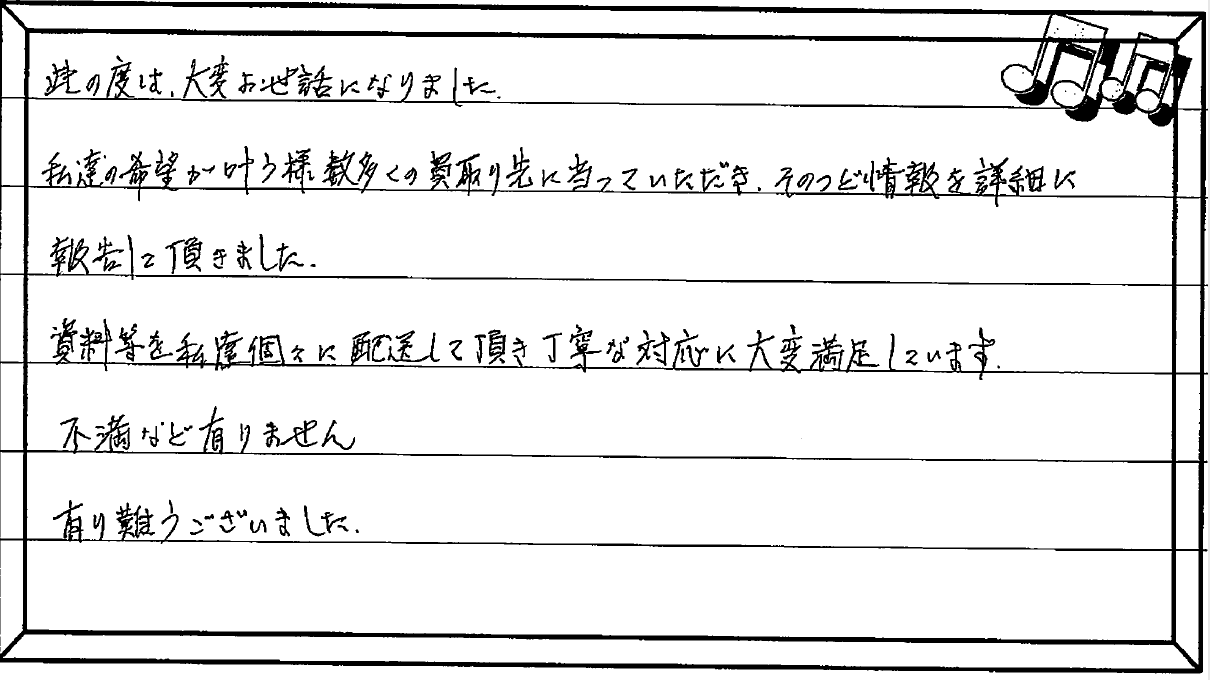 此の度は、大変お世話になりました。
私達の希望が叶う様、数多くの買取り先に当っていただき、そのつど情報を詳細に
報告して頂きました。
資料等を私達個々に配送して頂き丁寧な対応に大変満足しています。
不満など有りません
有り難うございました。